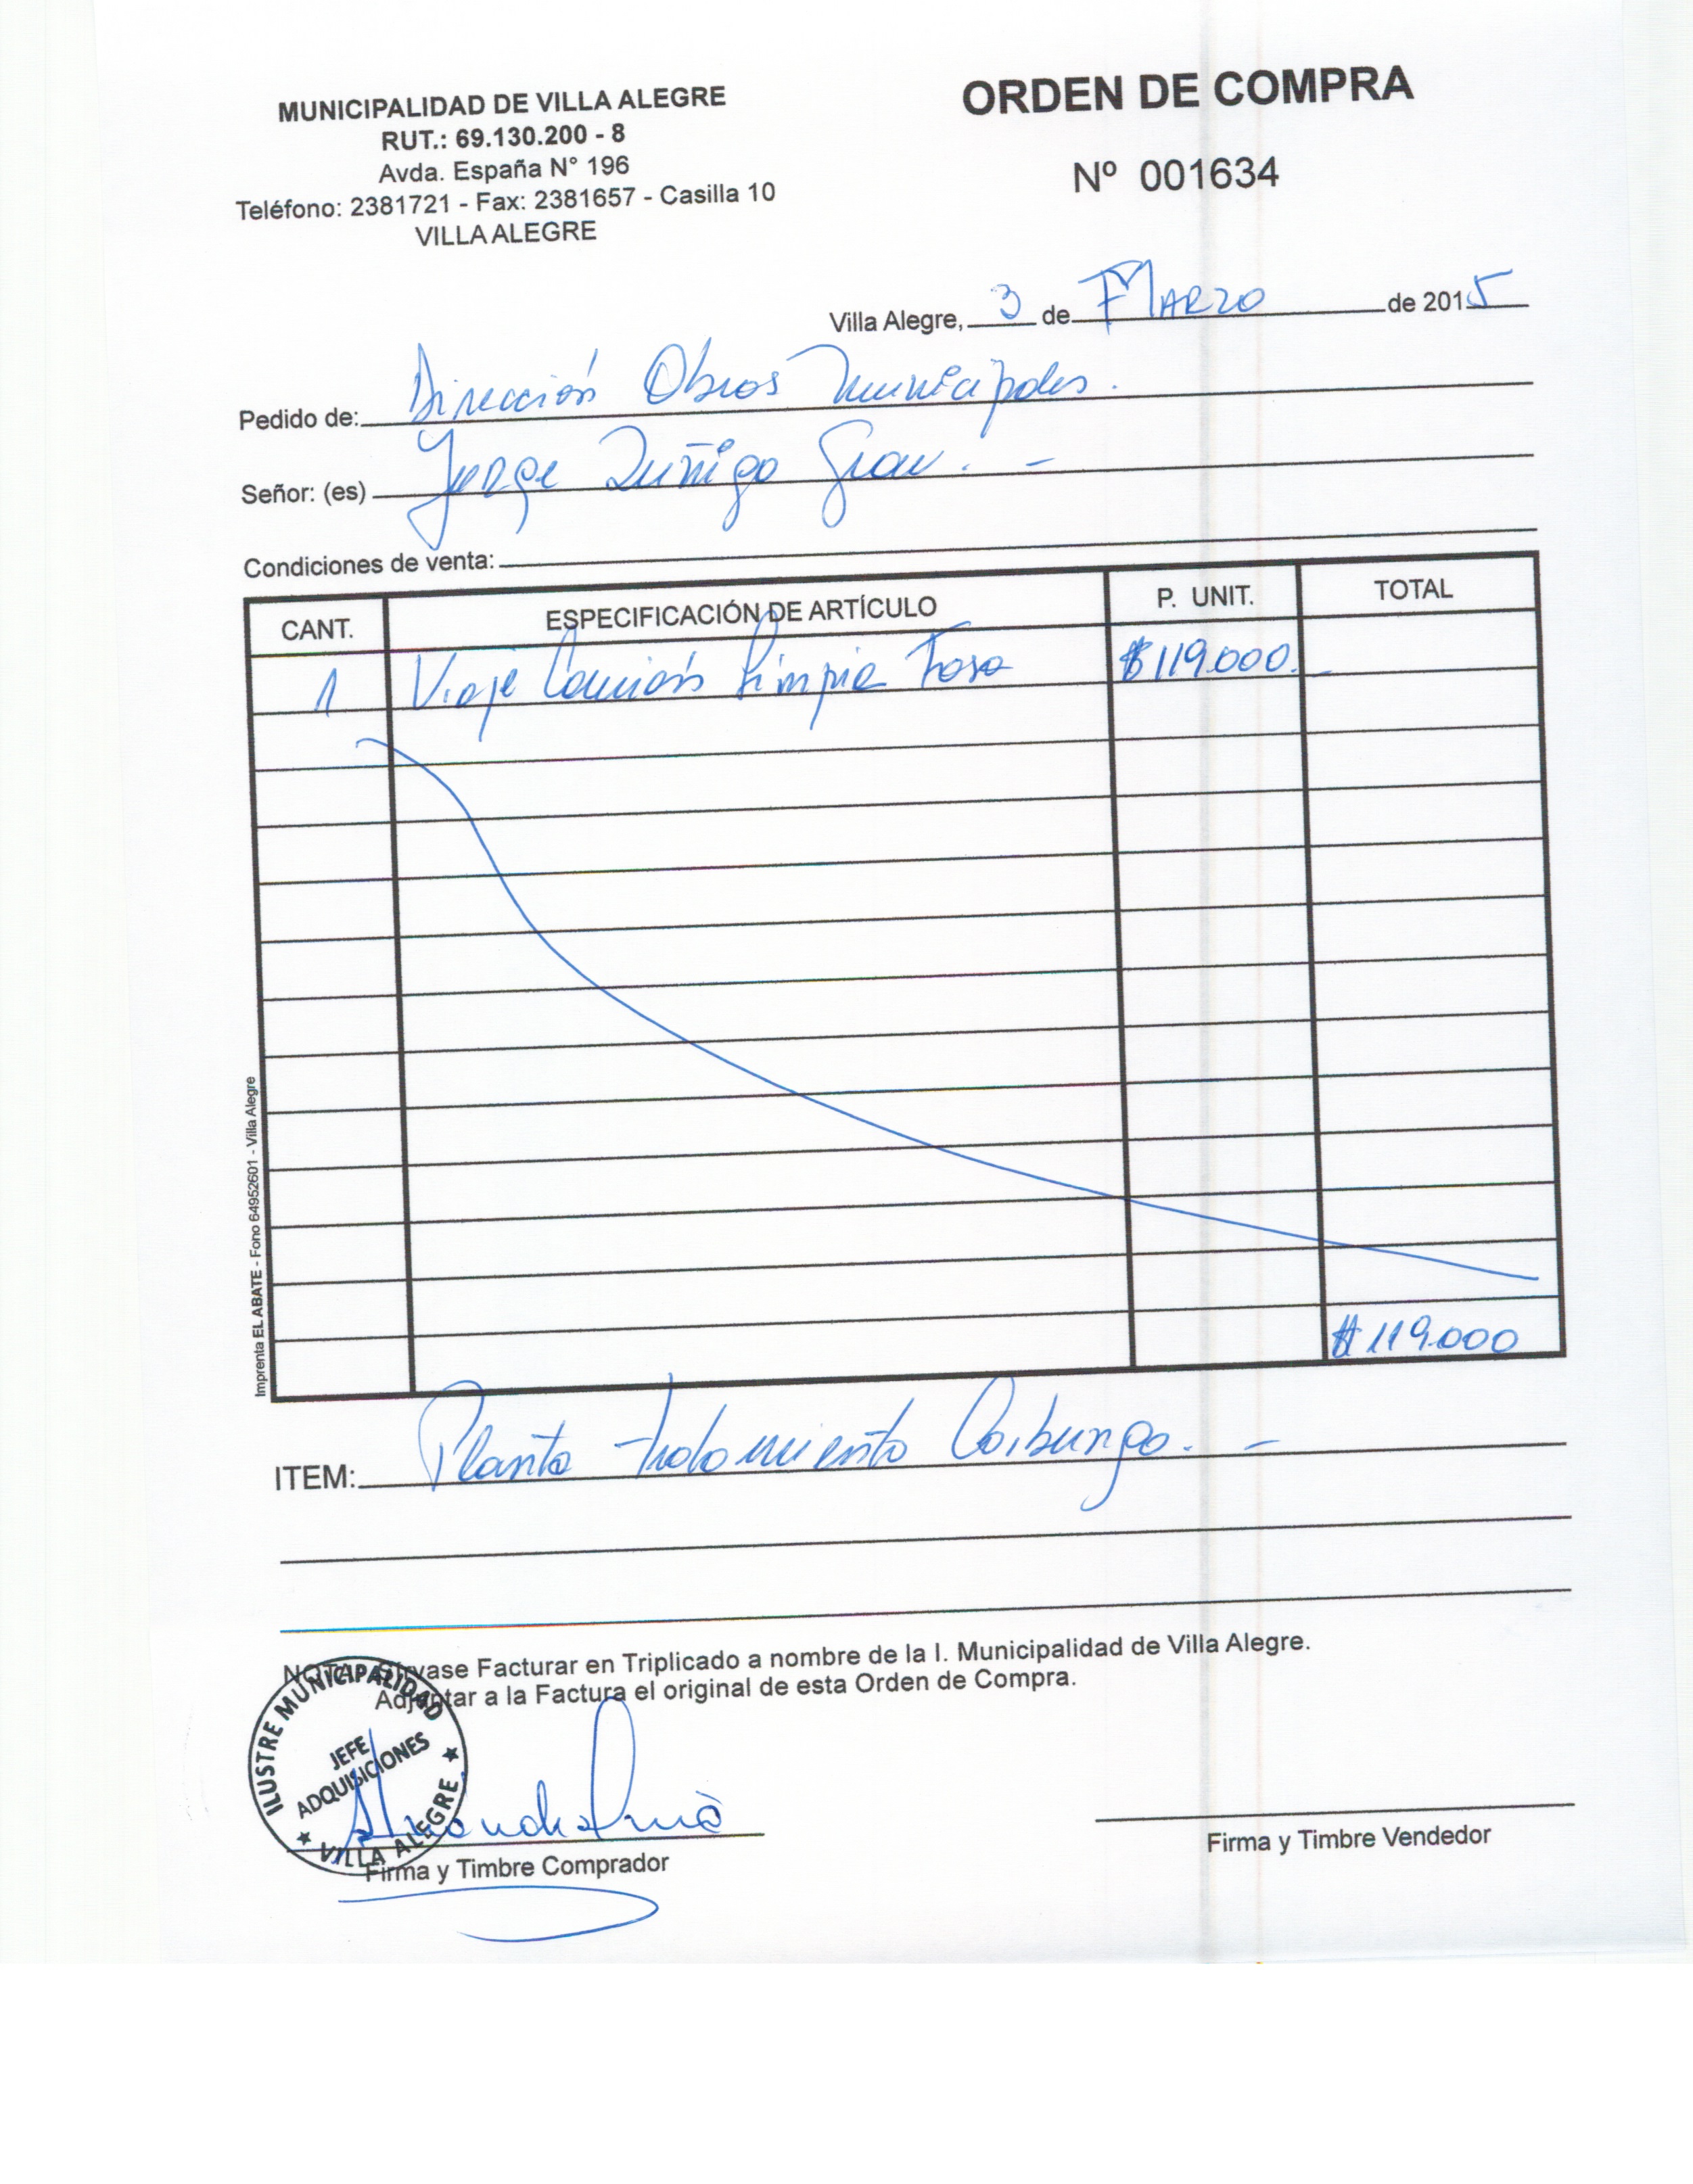 MUNICIPALIDAD DE VILLA ALEGRE
RUT.: 69.130.200 - 8
Avda. España N° 196
Teléfono: 2381721 - Fax: 2381657 - Casilla 10
VILLA ALEGRE
ORDEN DE COMPRA
Nº 001634
Villa Alegre, 3 de MARZO de 2015
Pedido de: Dirección Obras Municipales.
Señor: (es) Jorge Zuñiga Grau. -
Condiciones de venta:
CANT. ESPECIFICACIÓN DE ARTÍCULO P. UNIT. TOTAL
1 Viaje Camión Limpia Fosa $119.000.-
$119.000
ITEM: Planta tratamiento Coibungo. -
NOTA: Sírvase Facturar en Triplicado a nombre de la I. Municipalidad de Villa Alegre.
Adjuntar a la Factura el original de esta Orden de Compra.
ILUSTRE MUNICIPALIDAD
JEFE
ADQUISICIONES
★ VILLA ALEGRE ★
Firma y Timbre Comprador
Firma y Timbre Vendedor
Imprenta EL ABATE - Fono 64952601 - Villa Alegre